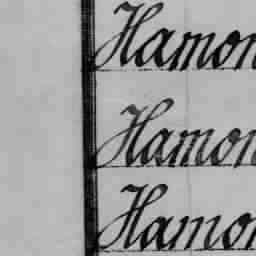 Hamon
Hamon
Hamon